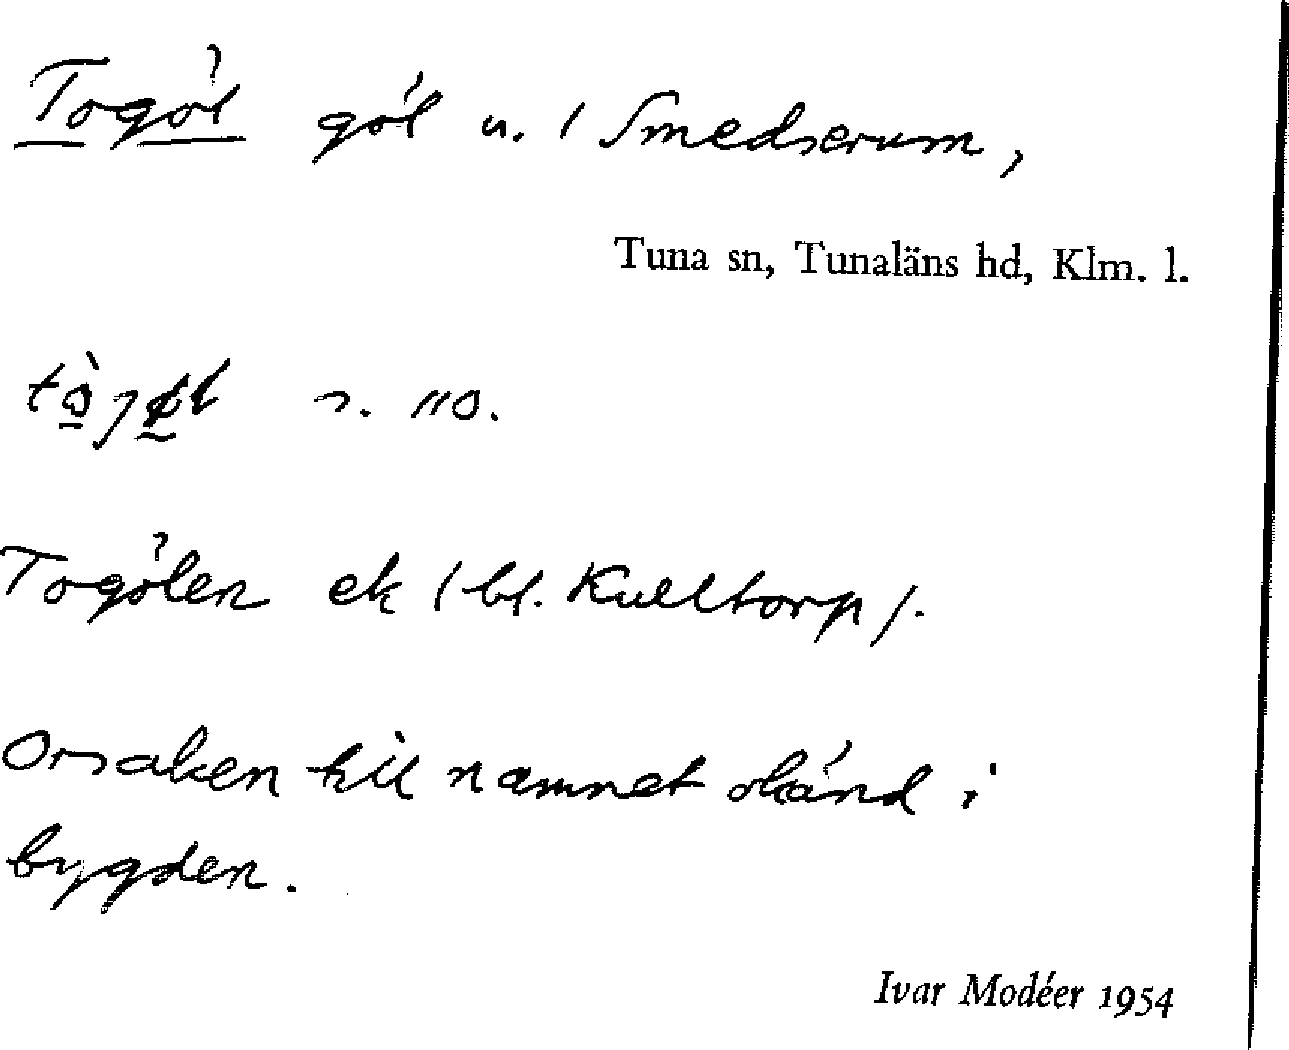 Togöl göl u. / Smedserum,
Tuna sn, Tunaläns hd, Klm. l.
110.
Togölen ek (bl. Kulltorp).
Orsaken till namnet okänd i
bygden.
Ivar Modéer 1954